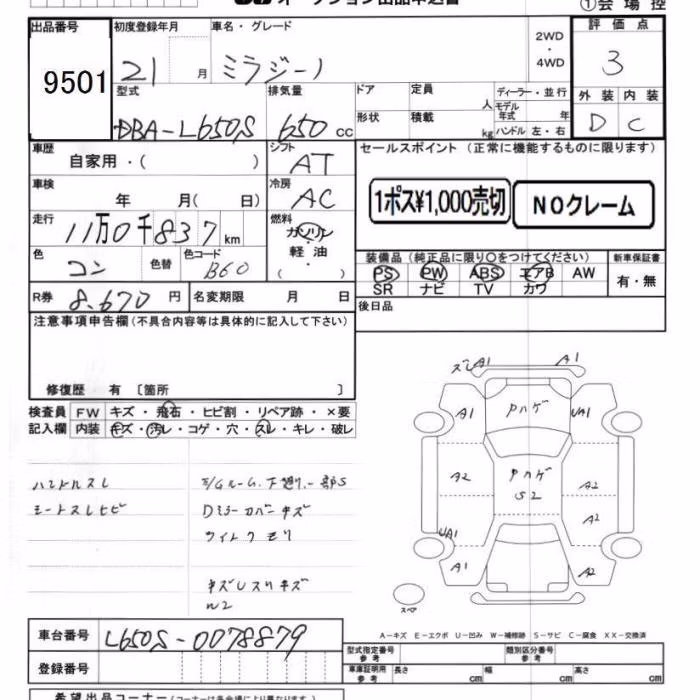 オークション出品申込書
①会場控
出品番号 初度登録年月 車名・グレード 2WD・4WD 評価点
9501 21 月 ミラジーノ 3
型式 排気量 ドア 定員 人 ディーラー・並行 外装 内装
DBA-L650S 650 cc 形状 積載 kg モデル年式 年 ハンドル 左・右 D C
車歴 自家用・( ) シフト AT セールスポイント (正常に機能するものに限ります)
車検 年 月( 日) 冷房 AC 1ポス¥1,000売切 NOクレーム
走行 11万0千837km 燃料 ガソリン 軽油 ( ・ )
色 コン 色替 色コード B60 装備品 (純正品に限り○をつけてください) 新車保証書
PS PW ABS エアB AW 有・無
SR ナビ TV カワ
R券 8.670円 名変期限 月 日 後日品
注意事項申告欄(不具合内容等は具体的に記入して下さい)
修復歴 有 〔箇所 〕
検査員 FW キズ・飛石・ヒビ割・リペア跡・×要
記入欄 内装 キズ・汚レ・コゲ・穴・スレ・キレ・破レ
ハンドルスレ
シートスレヒビ
下廻リ一部S
Dミラーカバーキズ
ライトクモリ
W2
ズレA1 A1
A1 Pハゲ UA1
A2 Pハゲ S2 A2
A2
UA1
A1 A2
スペア
A-キズ E-エクボ U-凹み W-補修跡 S-サビ C-腐食 XX-交換済
車台番号 L650S-0078879
登録番号
型式指定番号 参考 類別区分番号 参考
車庫証明用 参考 長さ cm 幅 cm 高さ cm
希望出品コーナー(コーナーは各会場により異なります)